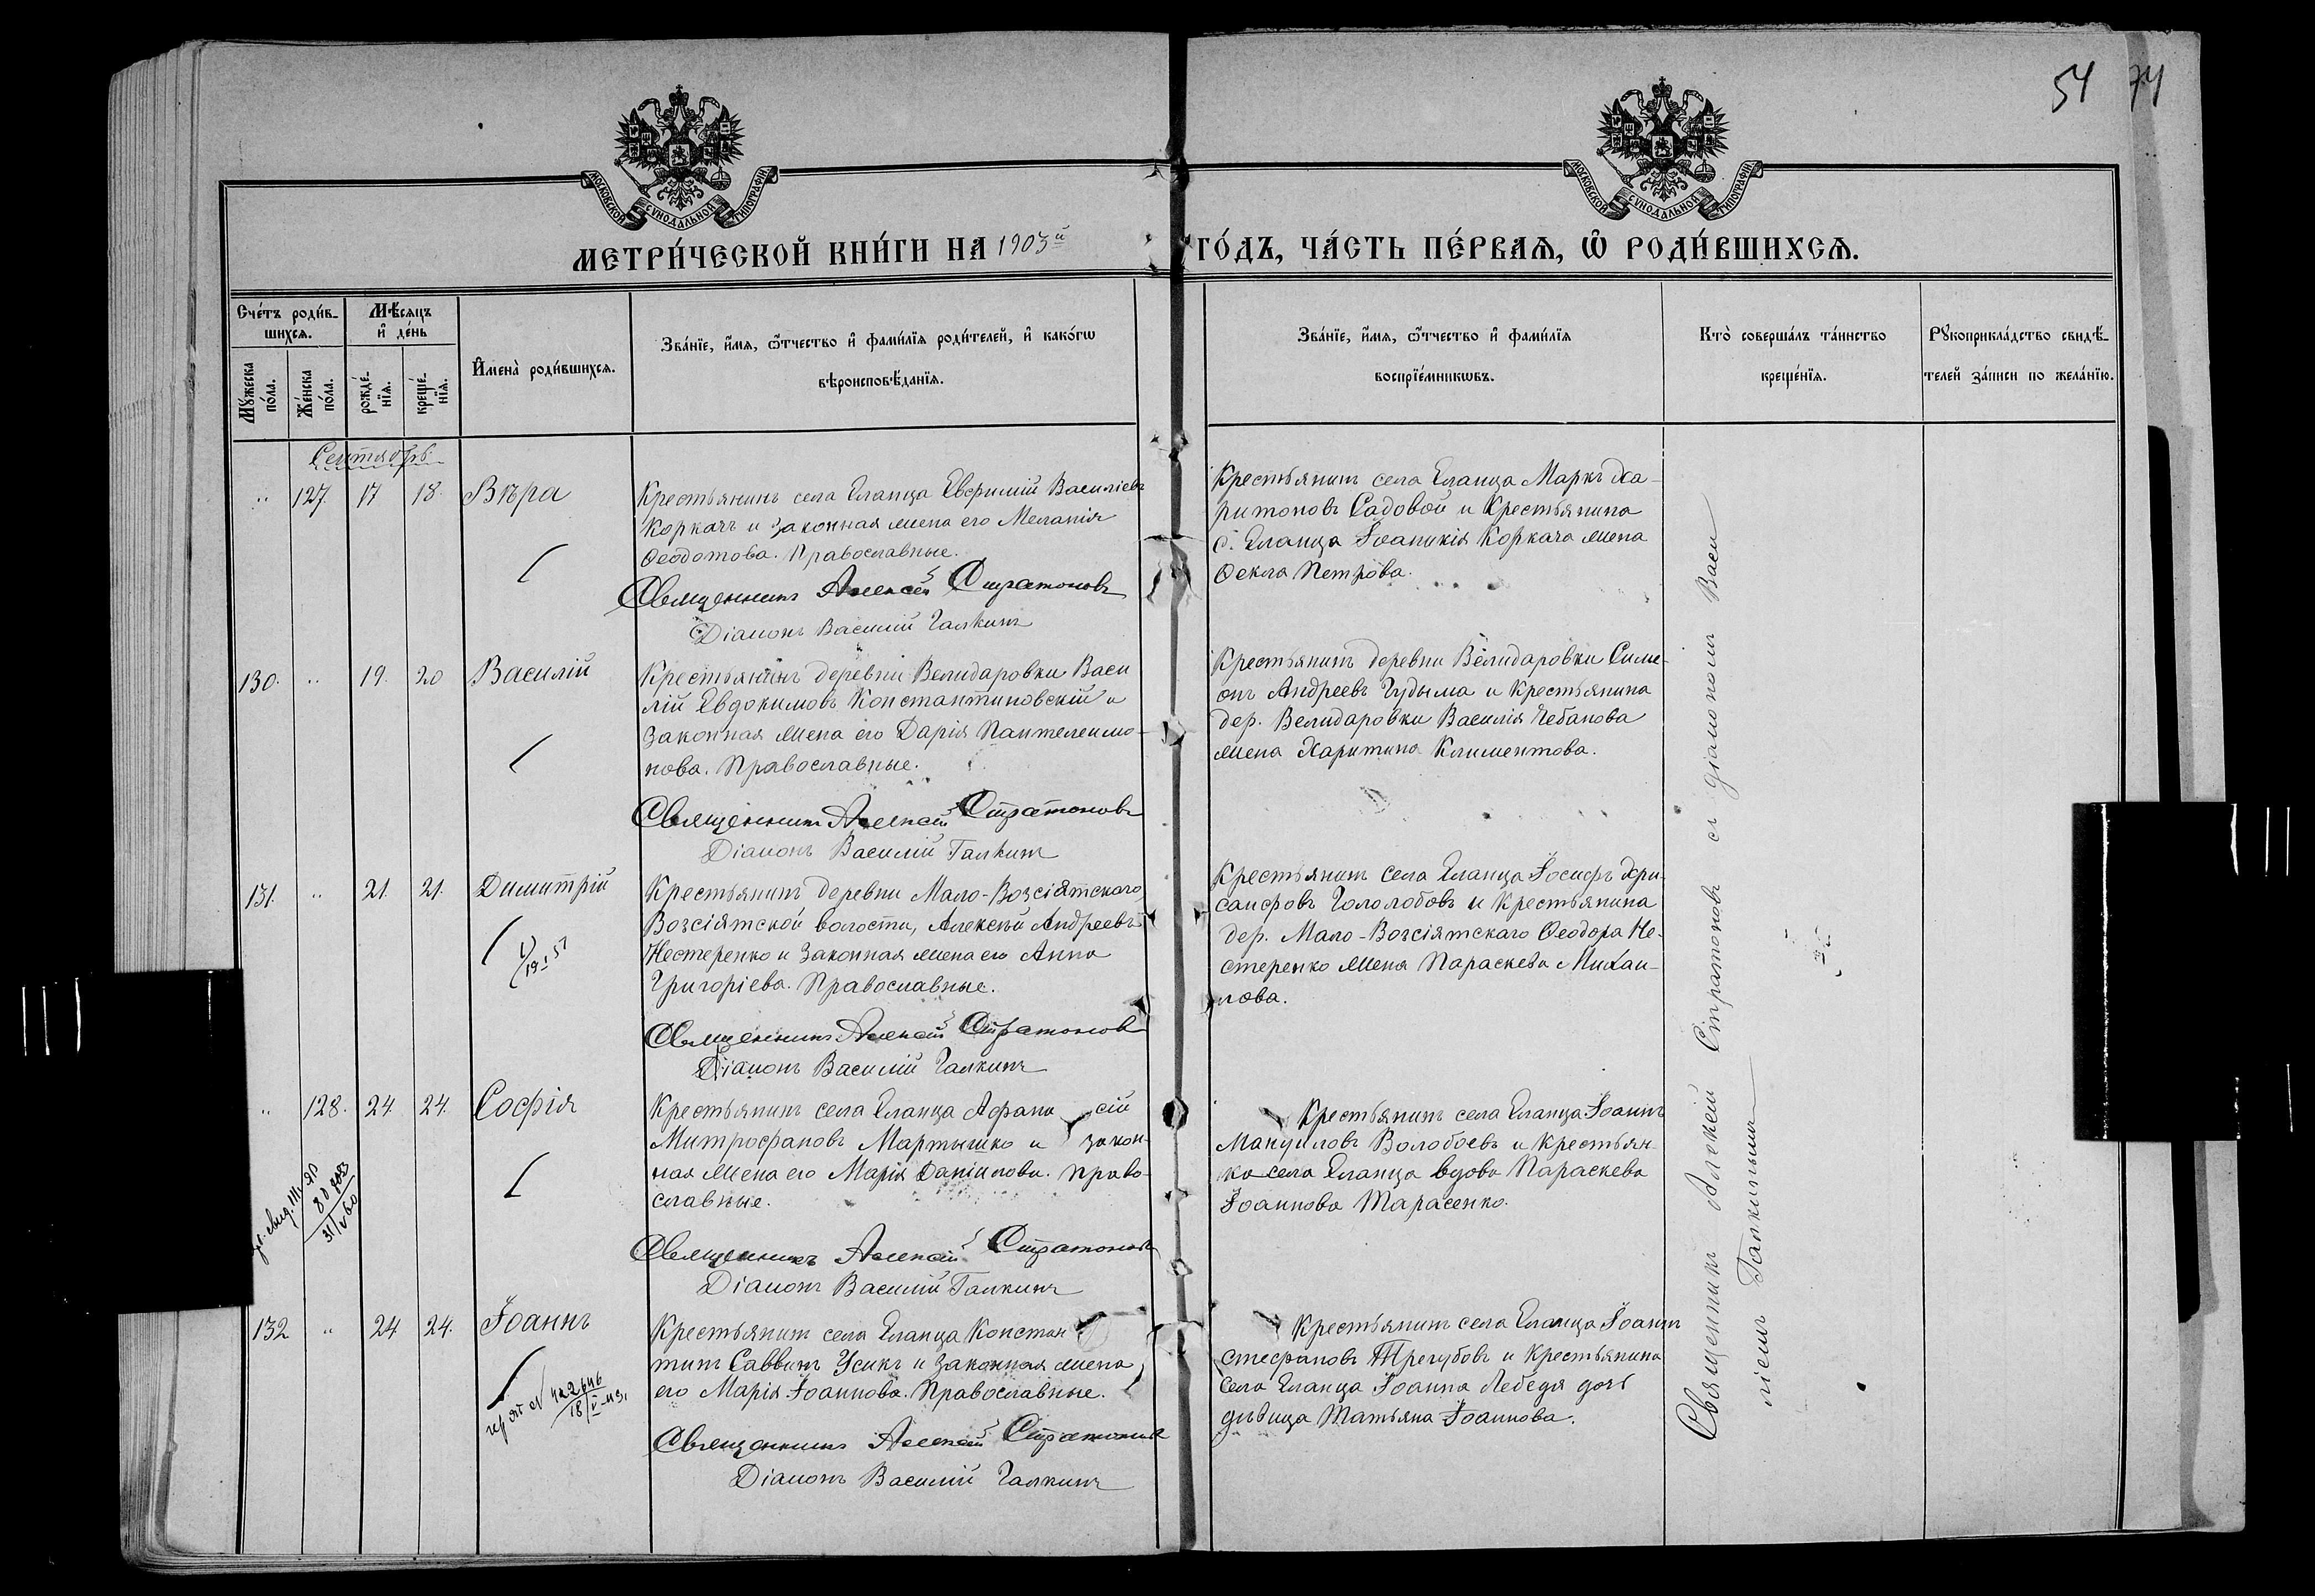 54 74
МОСКОВСКОЙ СѴНОДАЛЬНОЙ ТИПОГРАФІИ
МОСКОВСКОЙ СѴНОДАЛЬНОЙ ТИПОГРАФІИ
МЕТРИ́ЧЕСКОЙ КНИ́ГИ НА 1903й ГО́ДЪ, ЧА́СТЬ ПЕ́РВАѦ, Ѽ РОДИ́ВШИХСѦ.
Сче́тъ роди́в-
шихсѧ.
Мѣ́сѧцъ
и҆ де́нь
Мꙋ́жеска
по́ла.
Же́нска
по́ла.
рожде́-
нїѧ.
креще́-
нїѧ.
И҆мена̀ роди́вшихсѧ.
Зва́нїе, и҆́мѧ, ѻ҆́тчество и҆ фами́лїѧ роди́телей, и҆ како́гѡ
вѣроисповѣ́данїѧ.
Зва́нїе, и҆́мѧ, ѻ҆́тчество и҆ фами́лїѧ
воспрїе́мникѡвъ.
Кто̀ соверша́лъ та́инство
креще́нїѧ.
Рꙋкоприкла́дство свидѣ́-
телей за́писи по жела́нїю.
Сентябрь
" 127. 17 18. Вѣра
Крестьянинъ села Еланца Евфимій Василіевъ
Коркачъ и законная жена его Меланія
Ѳеодотова. Православные.
Священникъ Алексѣй Стратоновъ
Діаконъ Василій Галкинъ
Крестьянинъ села Еланца Маркъ Ха-
ритоновъ Садовой и Крестьянина
с. Еланца Іоанникія Коркача жена
Ѳекла Петрова.
130. " 19. 20 Василій
Крестьянинъ деревни Велидаровки Васи
лій Евдокимовъ Константиновскій и
законная жена его Дарія Пантелеимо-
нова. Православные.
Священникъ Алексѣй Стратоновъ
Діаконъ Василій Галкинъ
Крестьянинъ деревни Велидаровки Симе-
онъ Андреевъ Гудыма и Крестьянина
дер. Велидаровки Василія Чебанова
жена Харитина Климентова.
131. " 21. 21. Димитрій
Крестьянинъ деревни Мало-Возсіятскаго,
Возсіятской волости, Алексѣй Андреевъ
Нестеренко и законная жена его Анна
Григоріева. Православные.
Священникъ Алексѣй Стратоновъ
Діаконъ Василій Галкинъ
Крестьянинъ села Еланца Іосифъ Хри-
санфовъ Гололобовъ и Крестьянина
дер. Мало-Возсіятскаго Ѳеодора Не-
стеренко жена Параскева Михаи-
лова.
" 128. 24. 24. Софія
Крестьянинъ села Еланца Афана сій
Митрофановъ Мартышко и закон-
ная жена его Марія Даніилова. Право-
славные.
Священникъ Алексѣй Стратоновъ
Діаконъ Василій Галкинъ
Крестьянинъ села Еланца Іоаннъ
Мануиловъ Волобоевъ и Крестьян-
ка села Еланца вдова Параскева
Іоаннова Тарасенко.
31/V 60
132 " 24 24. Іоаннъ
Крестьянинъ села Еланца Констан
тинъ Саввинъ Усикъ и законная жена
его Марія Іоаннова. Православные.
Священникъ Алексѣй Стратоновъ
Діаконъ Василій Галкинъ
Крестьянинъ села Еланца Іоаннъ
Стефановъ Трегубовъ и Крестьянина
села Еланца Іоанна Лебедя дочь
дѣвица Татьяна Іоаннова.
Священникъ Алексѣй Стратоновъ съ діакономъ Васи
ліемъ Галкинымъ